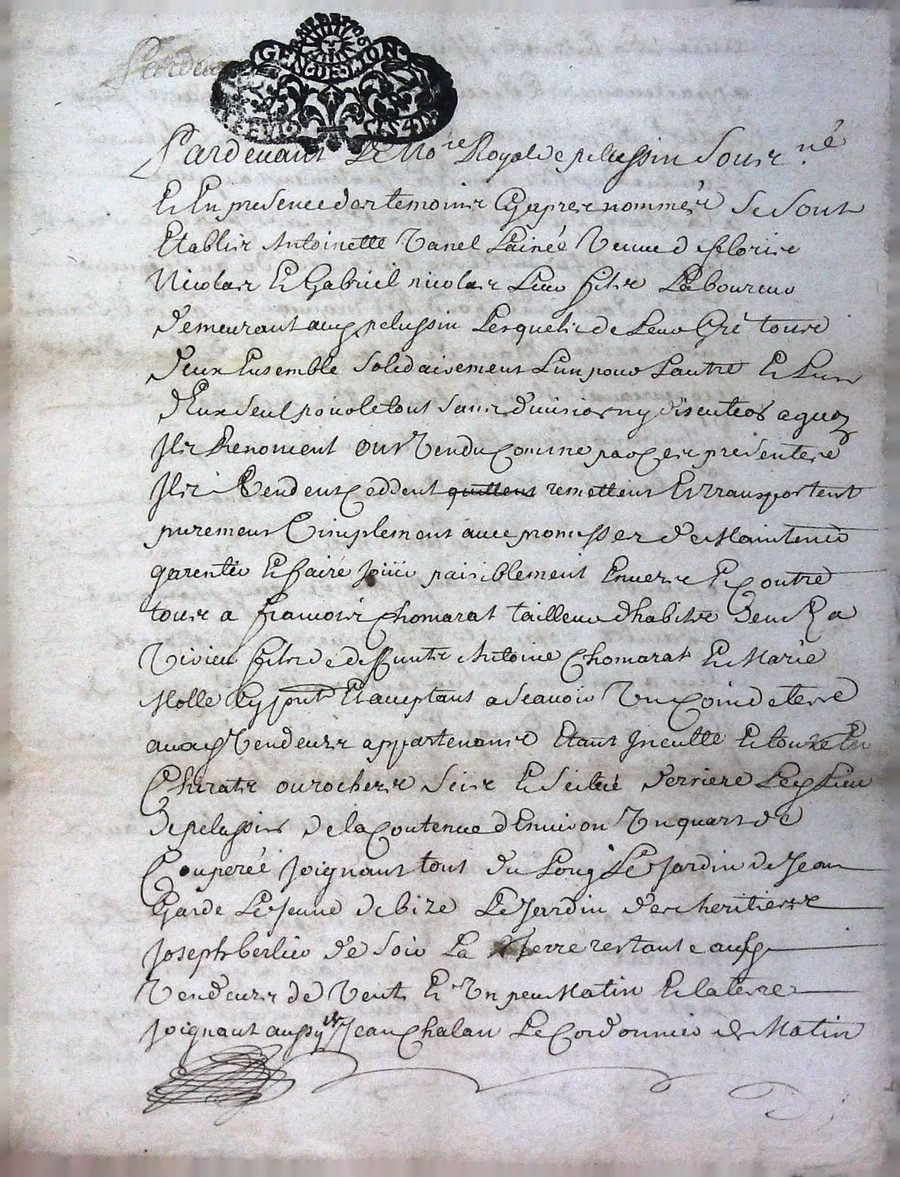 GEN. DE LYON
Pardevant Le No.re Royal de pelussin Soussi.né
Et En presence des temoins Cy apres nommés Se Sont
Etablis Antoinette Vanel Lainée Veuve de fleoris
Nicolas Et Gabriel nicolas Leur fils Laboureurs
demeurant aux pelussin Lesquels de Leur Gré tous
deux Ensemble Solidairement Lun pour Lautre Et Lun
dEux Seul pour le tout Sans division ny discution a quoy
Ils Renoncent ont Vendu Comme par Ces presentes
Ils Vendent Ceddent quittent remettent Et transportent
purement Et simplement avec promesses de Maintenir
garentir Et faire Joüir paisiblement Envers Et Contre
tous a francois Chomarat tailleur dhabits de
Vivieu fils de deffunts Antoine Chomarat Et Marie
Molle Cy pnt Et acceptant a Scavoir Un Coin de terre
auxy Vendeurs appartenant Etant Inculte Et tout En
Chirats ou rochers Sis Et Scitué derriere Ley Lieu
de pelussin de la Contenue dEnviron Un quart de
Couperée Joignant tout du Long Le Jardin de Jean
Garde Le Jeune de bize Le Jardin des heritiers
Joseph berlier de Soir La terre restante auxy
Vendeurs de Vent Et Un peu Matin Et la terre
Joignant aussy Jean Chalan Le Cordonnier de Matin